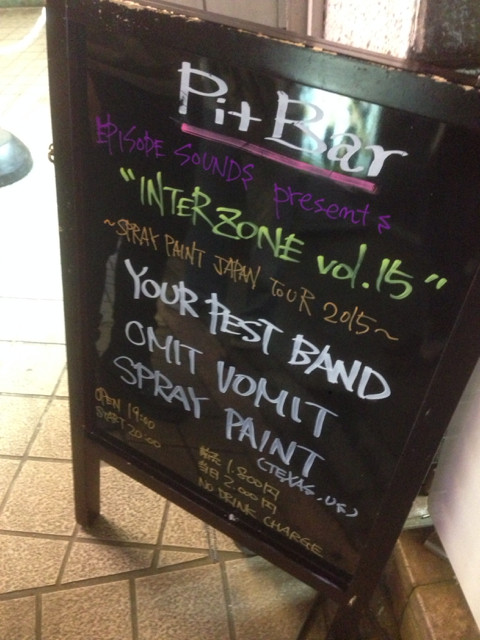 Pit Bar
EPISODE SOUNDS presents
"INTERZONE vol.15"
~SPRAY PAINT JAPAN TOUR 2015~
YOUR PEST BAND
OMIT VOMIT
SPRAY PAINT
(TEXAS.US)
OPEN 19:00
START 20:00
前売 1.800円
当日 2.000円
NO DRINK CHARGE